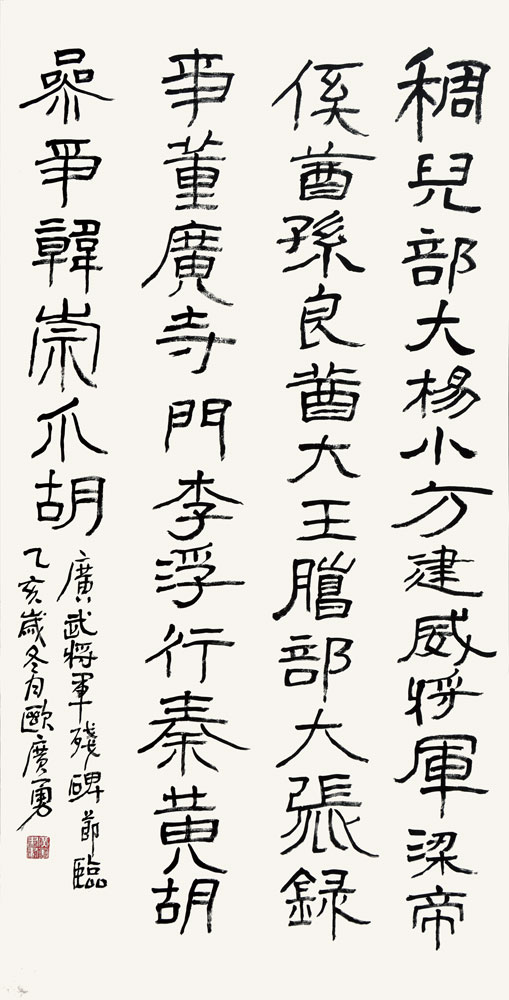 稠兒部大楊小方建威将軍梁帝
侯酋孫良酋大王部大張録
事董廣寺門李浮行秦黄胡
參事韓崇爪胡
廣武将軍殘碑節臨
乙亥歲冬月歐廣勇